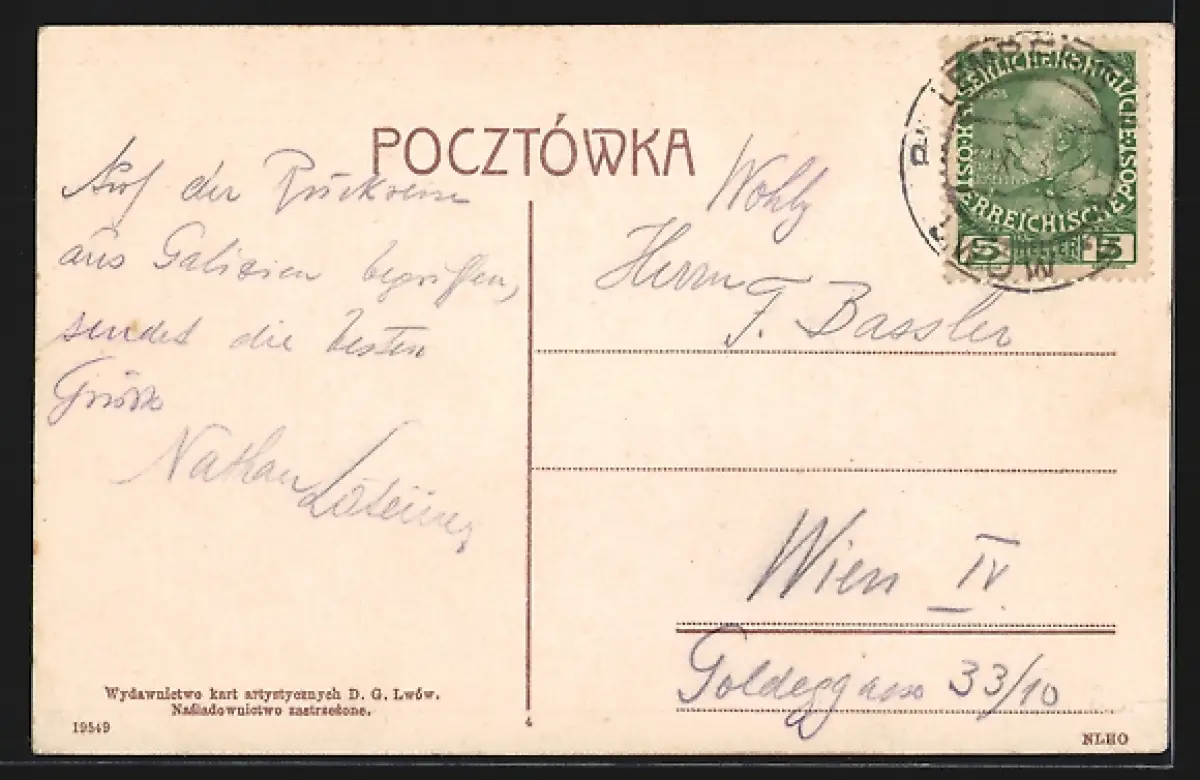 POCZTÓWKA
Auf der Rückreise
aus Galizien begriffen,
sendet die besten
Grüsse
Nathan
Wohlg
Herrn
F. Bassler
Wien IV.
Goldeggasse 33/10
LEMBERG
LWÓW
KAISERLICHE KÖNIGLICHE ÖSTERREICHISCHE POST
1908
5 HELLER 5
Wydawnictwo kart artystycznych D. G. Lwów.
Naśladownictwo zastrzeżone.
19549
4
NLHO